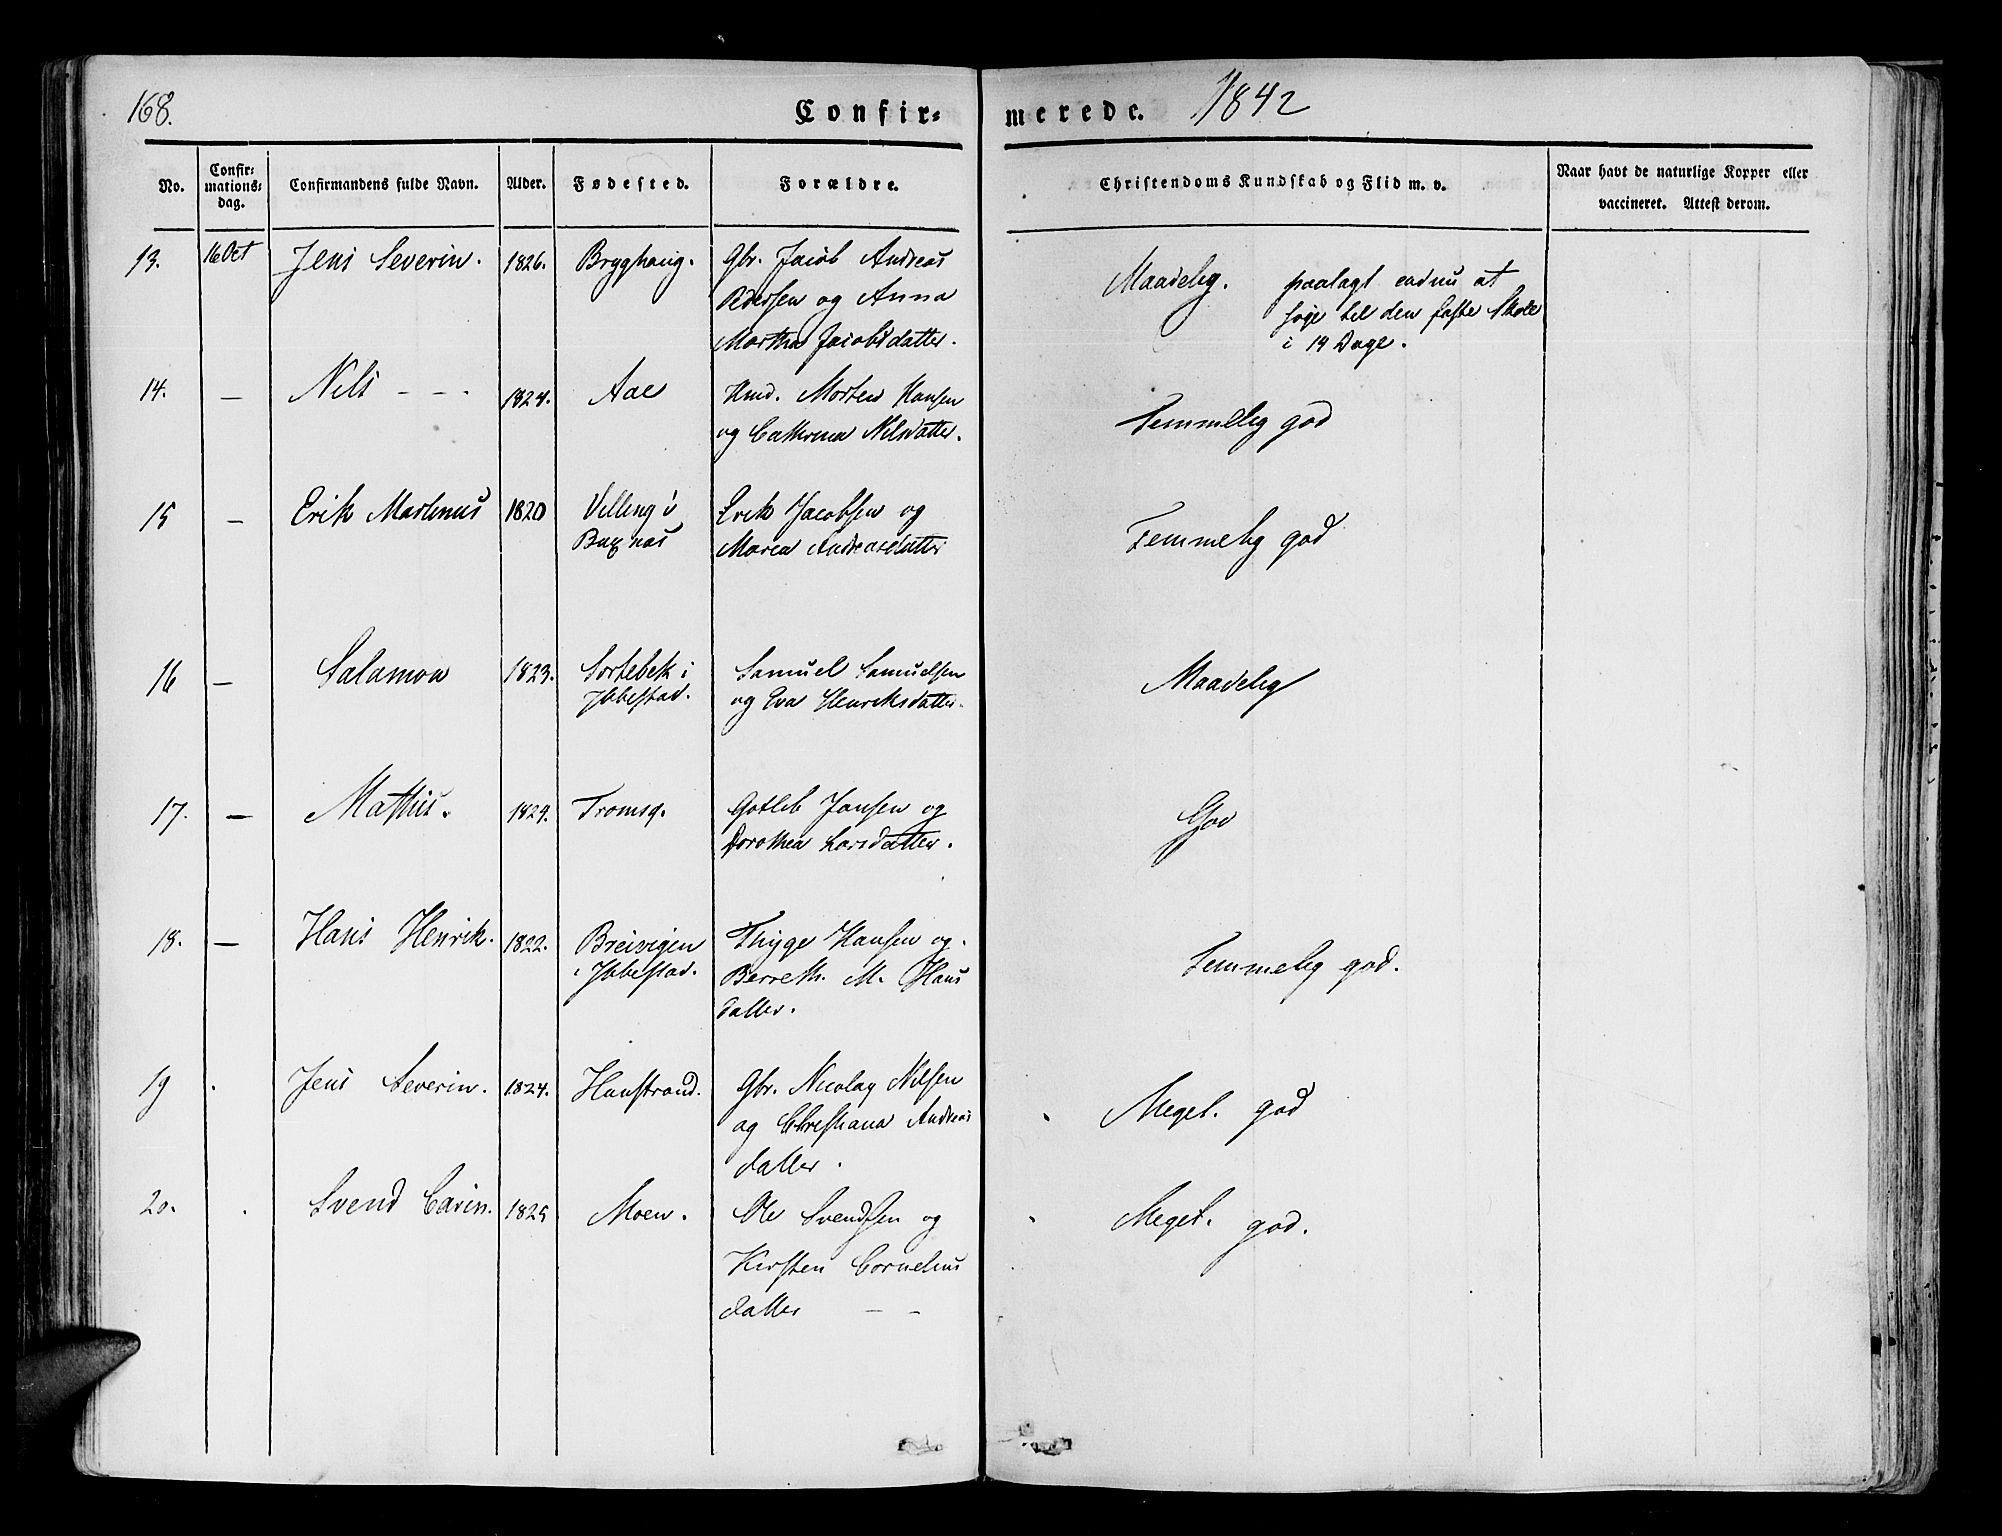 168.
Confir-
merede. 1842
No.
Confir-
mations-
dag.
Confirmandens fulde Navn.
Alder.
Fødested.
Forældre.
Christendoms Kundskab og Flid m. v.
Naar havt de naturlige Kopper eller
vaccineret. Attest derom.
13. 16 Oct Jens Severin. 1826. Bryghaug. Gbr. Jacob Andreas
Pedersen og Anna
Martha Jacobsdatter.
Maadelig. paalagt endnu at
søge til den faste Skole
i 14 Dage.
14. — Nils - - - 1824. Aae Hmd. Morten Hansen
og Cathrina Nilsdatter.
Temmelig god
15 — Erik Martinus 1820 Velling i Erik Jacobsen og
Maria Andreasdatter
Temmelig god
16 — Salamon 1823. Sortebek i Samuel Samuelsen
Ibbestad. og Eva Henriksdatter.
Maadelig
17. — Mathis. 1824. Tromsø. Gotleb Jansen og
Dorothea Larsdatter.
God
18. — Hans Henrik. 1822. Breivigen Thyge Hansen og
i Ibbestad. Bereth. M. Hans
datter.
Temmelig god.
19 . Jens Severin. 1824. Hunstrand. Gbr. Nicolay Nilsen
og Christiana Andreas
datter.
Meget. god
20. . Svend Carin. 1825 Moen. Ole Svendsen og
Kirsten Cornelius
datter — -
Meget. god.